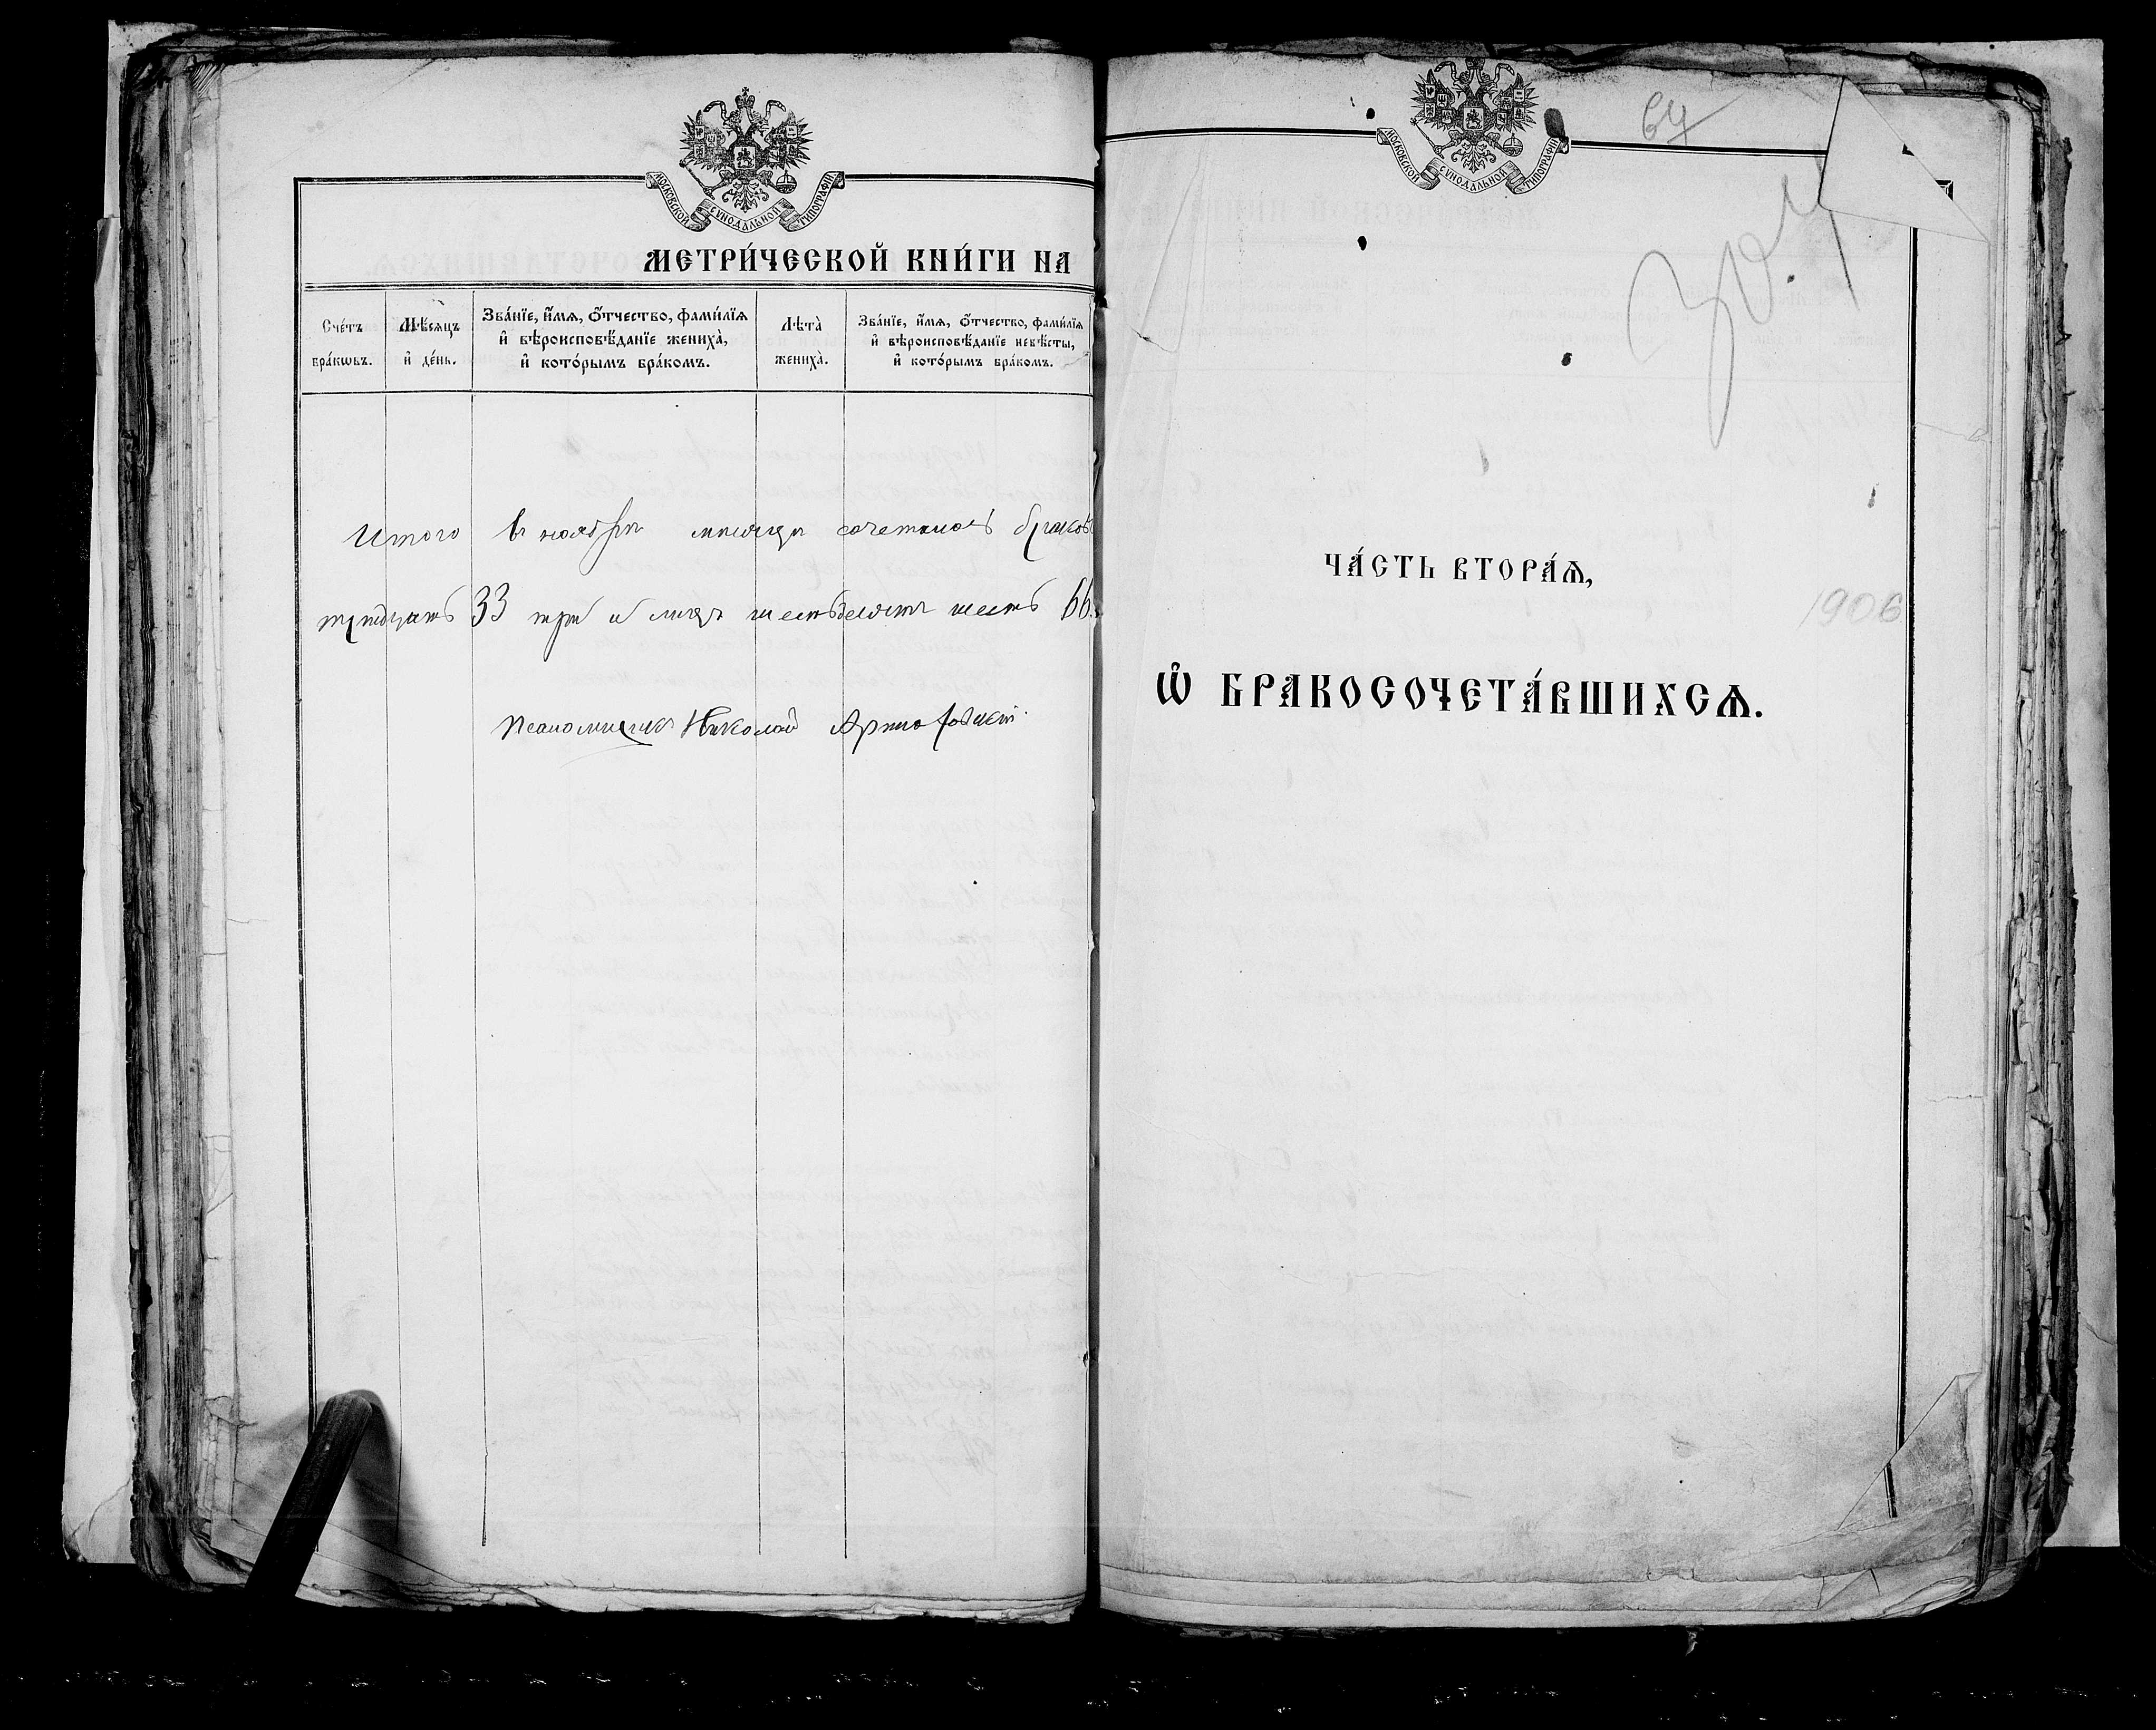 МОСКОВСКОЙ СѴНОДАЛЬНОЙ ТИПОГРАФІИ
МЕТРИ́ЧЕСКОЙ КНИ́ГИ НА
Сче́тъ бра́кѡвъ.
Мѣ́сяцъ и҆ де́нь.
Зва́нїе, и҆́мѧ, ѻ҆́тчество, фами́лїѧ
и҆ вѣроисповѣ́данїе жениха̀,
и҆ кото́рымъ бра́комъ.
Лѣта̀ жениха̀.
Зва́нїе, и҆́мѧ, ѻ҆́тчество, фами́лїѧ
и҆ вѣроисповѣ́данїе невѣ́сты,
и҆ кото́рымъ бра́комъ.
Итого в ноябрѣ мѣсяцѣ сочеталось браковъ
тридцать 33 три и лицъ шестьдесятъ шесть 66.
Псаломщикъ Николай
МОСКОВСКОЙ СѴНОДАЛЬНОЙ ТИПОГРАФІИ
64
ЧА́СТЬ ВТОРА́Ѧ,
1906
Ѽ БРАКОСОЧЕТА́ВШИХСѦ.